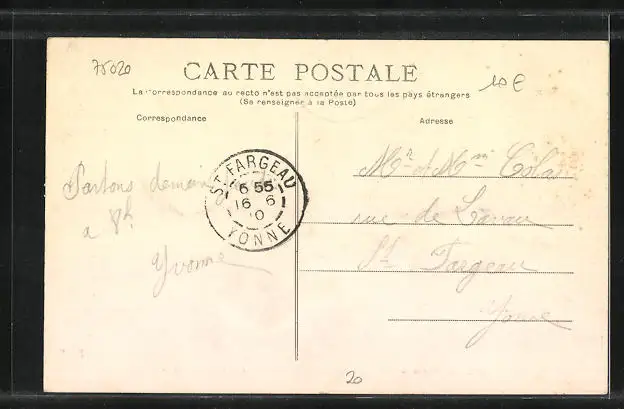 75020
10 €
CARTE POSTALE
La correspondance au recto n'est pas acceptée par tous les pays étrangers
(Se renseigner à la Poste)
Correspondance
Adresse
Partons demain
a 8h
Yvonne
ST FARGEAU
6 55
16 6
10
YONNE
Mr et Mme Colas
rue de Lavau
St Fargeau
Yonne
20